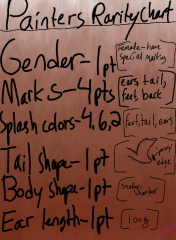 Painters Rarity Chart
Gender-1pt
Female-have
special marking
Marks-4pts
ears, tail,
feet, back
Splash colors-4,6,2
feet, tail, ears
Tail shape-1pt
edge
Body shape-1pt
shorter
Ear length-1pt
long